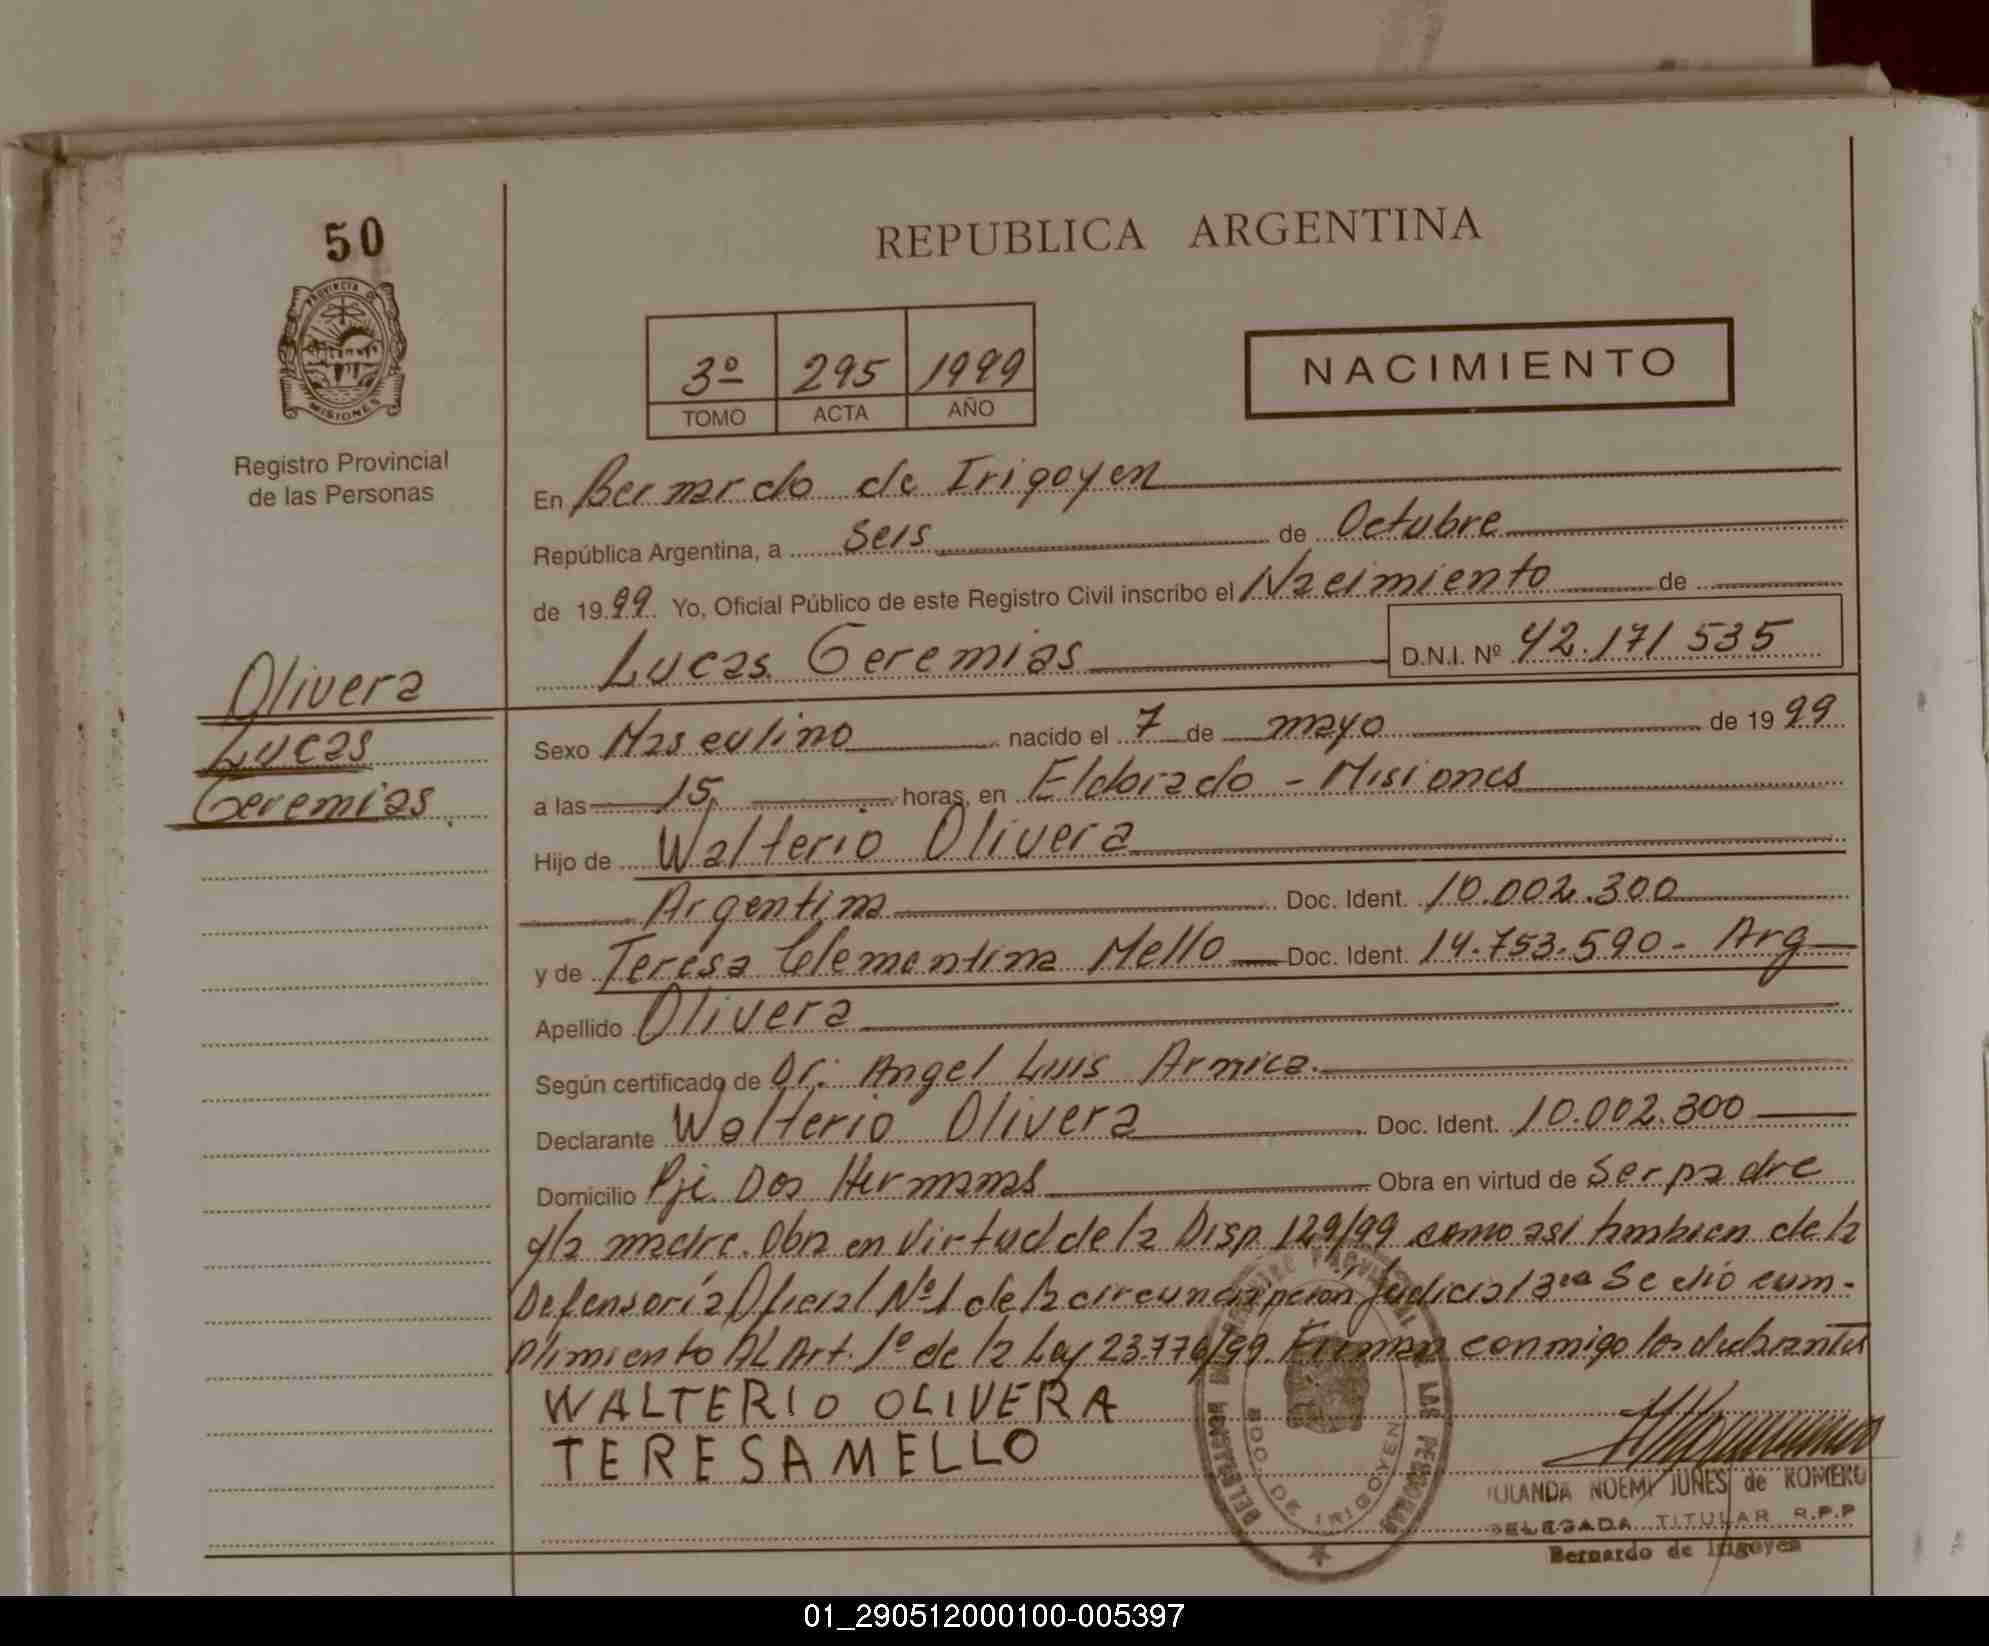 50
PROVINCIA DE
MISIONES
Registro Provincial
de las Personas
Olivera
Lucas
Geremias
REPUBLICA ARGENTINA
3º 295 1999
TOMO ACTA AÑO
NACIMIENTO
En Bernardo de Irigoyen
República Argentina, a Seis de Octubre
de 1999 Yo, Oficial Público de este Registro Civil inscribo el Nacimiento de
Lucas Geremias D.N.I. Nº 42.171.535
Sexo Masculino nacido el 7 de mayo de 1999
a las 15 horas, en Eldorado - Misiones
Hijo de Walterio Olivera
Argentina Doc. Ident. 10.002.300
y de Teresa Clementina Mello Doc. Ident. 14.753.590- Arg
Apellido Olivera
Según certificado de Dr. Angel Luis Arnica.
Declarante Walterio Olivera Doc. Ident. 10.002.300
Domicilio Pje. Dos Hermanas Obra en virtud de Ser padre
y la madre. Obra en virtud de la Disp. 129/99 como asi tambien de la
Defensoría Oficial Nº1 de la circunscripcion Judicial 3ra Se dió cum-
plimiento AL Art. 1º de la Ley 23.776/99. Firman conmigo los declarantes
WALTERIO OLIVERA
TERESA MELLO
DELEGACION DEL REGISTRO PROVINCIAL DE LAS PERSONAS
BDO. DE IRIGOYEN
YOLANDA NOEMI JUNES de ROMERO
DELEGADA TITULAR R.P.P
Bernardo de Irigoyen
01_290512000100-005397